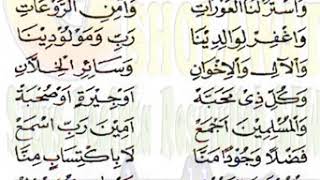 وَاسْتُرْ لَنَا الْعَوْرَاتِ وَآمِنِ الرَّوْعَاتِ
وَاغْفِرْ لِوَالِدِيْنَا رَبِّ وَمَوْلُوْدِيْنَا
وَالْآلِ وَالْاِخْوَانِ وَسَائِرِ الْخِلَّانِ
وَكُلِّ ذِيْ مَحَبَّةٍ اَوْجِيْرَةٍ اَوْصُحْبَةٍ
وَالْمُسْلِمِيْنَ اَجْمَعْ آمِيْنَ رَبِّ اسْمَعْ
فَضْلًا وَجُوْدًا مَنَّا لَا بِاكْتِسَابٍ مِنَّا